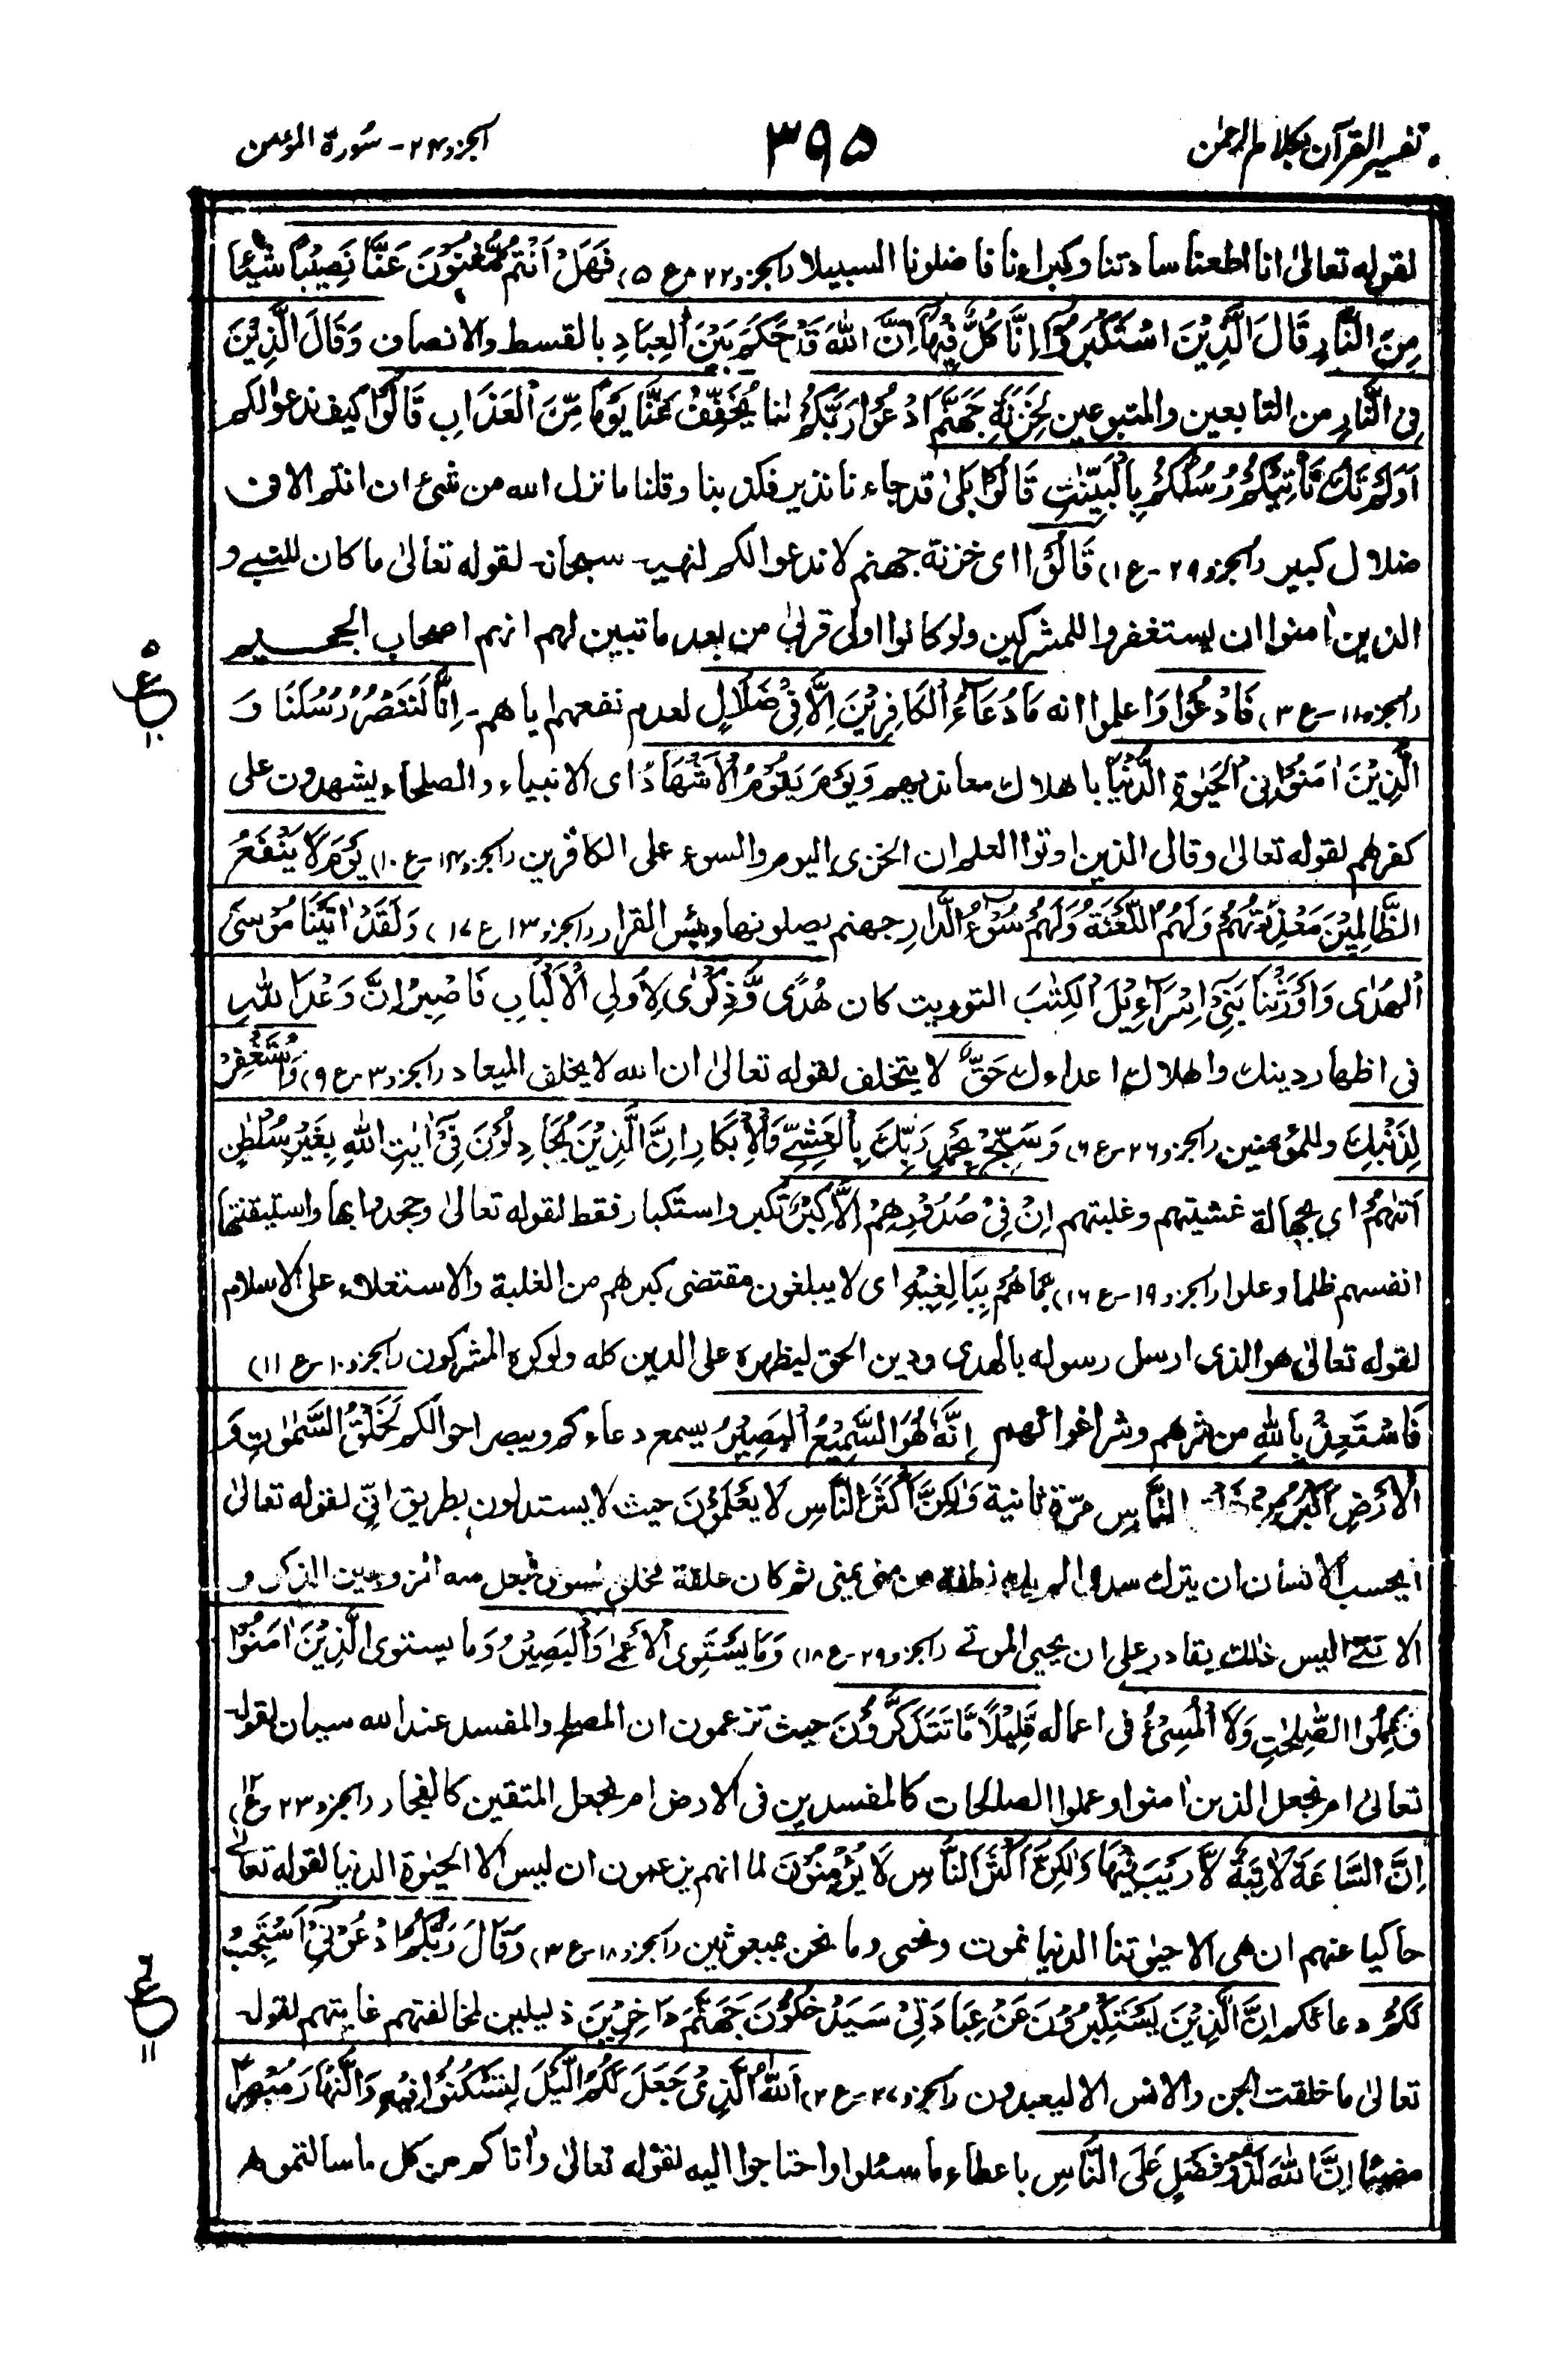 تفسير القرآن بكلام الرحمٰن
٣٩٥
الجزو ٢٤ - سُورة المؤمن
لقوله تعالىٰ انا اطعنا سادتنا وكبراءنا فاضلونا السبيلا (الجزو ٢٢ - ع ٥) فَهَلْ اَنْتُمْ مُّغْنُوْنَ عَنَّا نَصِيْبًا شَيْئًا
مِنَ النَّارِ قَالَ الَّذِيْنَ اسْتَكْبَرُوْٓا اِنَّا كُلٌّ فِيْهَآ اِنَّ اللّٰهَ قَدْ حَكَمَ بَيْنَ الْعِبَادِ بالقسط والانصاف وَقَالَ الَّذِيْنَ
فِى النَّارِ من التابعين والمتبوعين لِخَزَنَةِ جَهَنَّمَ ادْعُوْا رَبَّكُمْ لنا يُخَفِّفْ عَنَّا يَوْمًا مِّنَ الْعَذَابِ قَالُوْٓا كيف ندعوا لكم
اَوَلَمْ تَكُ تَاْتِيْكُمْ رُسُلُكُمْ بِالْبَيِّنٰتِ قَالُوْا بَلٰى قد جاءنا نذير فكذبنا وقلنا ما نزل الله من شئ ان انتم الا فى
ضلال كبير (الجزو ٢٩ - ع ١) قَالُوْا اى خزنة جهنم لا ندعوا لكم لنهيه سبحانه لقوله تعالىٰ ما كان للنبى و
الذين اٰمنوا ان يستغفروا للمشركين ولو كانوا اولى قربىٰ من بعد ما تبين لهم انهم اصحاب الجحيم
(الجزو ١١ - ع ٣) فَادْعُوْا وَاعلموا انه مَا دُعَآءُ الْكَافِرِيْنَ اِلَّا فِىْ ضَلَالٍ لعدم نفعهم اياهم - اِنَّا لَنَنْصُرُ رُسُلَنَا وَ
الَّذِيْنَ اٰمَنُوْا فِى الْحَيٰوةِ الدُّنْيَا باهلاك معانديهم وَيَوْمَ يَقُوْمُ الْاَشْهَادُ اى الانبياء والصلحاء يشهدون على
كفرهم لقوله تعالىٰ وقالى الذين اوتوا العلم ان الخزى اليوم والسوء على الكافرين (الجزو ١٤ - ع ١٠) يَوْمَ لَا يَنْفَعُ
الظَّالِمِيْنَ مَعْذِرَتُهُمْ وَلَهُمُ اللَّعْنَةُ وَلَهُمْ سُوْٓءُ الدَّارِ جهنم يصلونها وبئس القرار (الجزو ١٣ ع ١٧) وَلَقَدْ اٰتَيْنَا مُوْسَى
الْهُدٰى وَاَوْرَثْنَا بَنِىْٓ اِسْرَآءِيْلَ الْكِتٰبَ التوريت كان هُدًى وَّذِكْرٰى لِاُولِى الْاَلْبَابِ فَاصْبِرْ اِنَّ وَعْدَ اللّٰهِ
فى اظهار دينك واهلاك اعداءك حَقٌّ لا يتخلف لقوله تعالىٰ ان الله لا يخلف الميعاد (الجزو ٣ - ع ٩) وَاسْتَغْفِرْ
لِذَنْبِكَ وللمؤمنين (الجزو ٢٦ - ع ٦) وَسَبِّحْ بِحَمْدِ رَبِّكَ بِالْعَشِىِّ وَالْاِبْكَارِ اِنَّ الَّذِيْنَ يُجَادِلُوْنَ فِىْٓ اٰيٰتِ اللّٰهِ بِغَيْرِ سُلْطٰنٍ
اَتٰىهُمْ اى بجهالة غشيتهم وغلبتهم اِنْ فِىْ صُدُوْرِهِمْ اِلَّا كِبْرٌ تكبر واستكبار فقط لقوله تعالىٰ وجحدوا بها واستيقنتها
انفسهم ظلما وعلوا (الجزو ١٩ - ع ١٦) مَّا هُمْ بِبَالِغِيْهِ اى لا يبلغون مقتضى كبرهم من الغلبة والاستعلاء على الاسلام
لقوله تعالىٰ هو الذى ارسل رسوله بالهدى ودين الحق ليظهره على الدين كله ولو كره المشركون (الجزو ١٠ - ع ١١)
فَاسْتَعِذْ بِاللّٰهِ من شرهم وشر اغوائهم اِنَّهٗ هُوَ السَّمِيْعُ الْبَصِيْرُ يسمع دعاءكم ويبصر احوالكم لَخَلْقُ السَّمٰوٰتِ وَ
الْاَرْضِ اَكْبَرُ مِنْ خَلْقِ النَّاسِ مرّة ثانية وَلٰكِنَّ اَكْثَرَ النَّاسِ لَا يَعْلَمُوْنَ حيث لا يستدلون بطريق انّى لقوله تعالىٰ
ايحسب الانسان ان يترك سدى الم يك نطفة من منى يمنى ثم كان علقة فخلق فسوى فجعل منه الزوجين الذكر و
الانثى اليس ذٰلك بقادر على ان يحيى الموتى (الجزو ٢٩ - ع ١٨) وَمَا يَسْتَوِى الْاَعْمٰى وَالْبَصِيْرُ وَما يستوى الَّذِيْنَ اٰمَنُوْا
وَعَمِلُوا الصّٰلِحٰتِ وَلَا الْمُسِىْٓءُ فى اعماله قَلِيْلًا مَّا تَتَذَكَّرُوْنَ حيث تزعمون ان المصلح والمفسد عند الله سيان لقوله
تعالىٰ ام نجعل الذين اٰمنوا وعملوا الصالحات كالمفسدين فى الارض ام نجعل المتقين كالفجار (الجزو ٢٣ - ع ١٢)
اِنَّ السَّاعَةَ لَاٰتِيَةٌ لَّا رَيْبَ فِيْهَا وَلٰكِنَّ اَكْثَرَ النَّاسِ لَا يُؤْمِنُوْنَ لما انهم يزعمون ان ليس الا الحيٰوة الدنيا لقوله تعالىٰ
حاكيا عنهم ان هى الا حيٰوتنا الدنيا نموت ونحيى وما نحن بمبعوثين (الجزو ١٨ - ع ٣) وَقَالَ رَبُّكُمُ ادْعُوْنِىْٓ اَسْتَجِبْ
لَكُمْ دعاءكم اِنَّ الَّذِيْنَ يَسْتَكْبِرُوْنَ عَنْ عِبَادَتِىْ سَيَدْخُلُوْنَ جَهَنَّمَ دَاخِرِيْنَ ذليلين لمخالفتهم غايتهم لقوله
تعالىٰ ما خلقت الجن والانس الا ليعبدون (الجزو ٢٧ - ع ٢) اَللّٰهُ الَّذِىْ جَعَلَ لَكُمُ الَّيْلَ لِتَسْكُنُوْا فِيْهِ وَالنَّهَارَ مُبْصِرًا
مضيئا اِنَّ اللّٰهَ لَذُوْ فَضْلٍ عَلَى النَّاسِ باعطاء ما سئلوا واحتاجوا اليه لقوله تعالىٰ واٰتاكم من كل ما سالتموه
٥
ع
١٠
٦
ع
١١